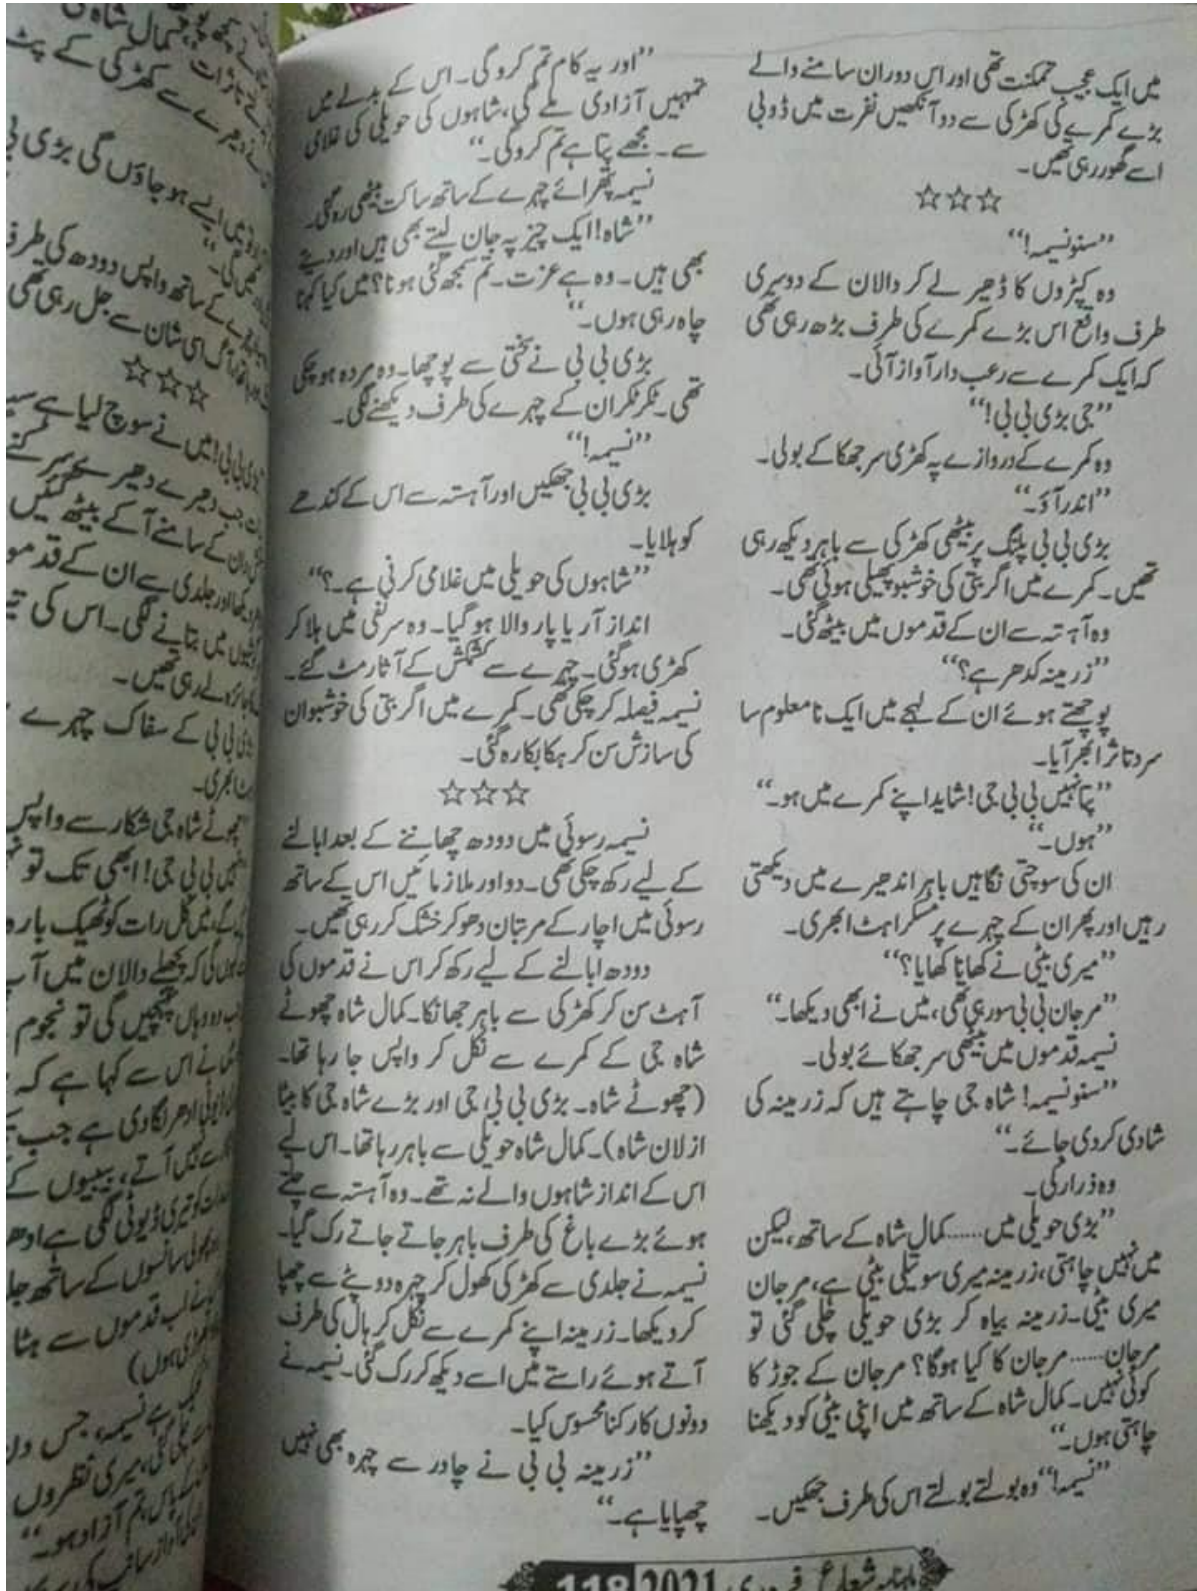 میں ایک عجیب تمکنت تھی اور اس دوران سامنے والے
بڑے کمرے کی کھڑکی سے دو آنکھیں نفرت میں ڈوبی
اسے گھور رہی تھیں۔
☆☆☆
”سنو نسیمہ!“
وہ کپڑوں کا ڈھیر لے کر دالان کے دوسری
طرف واقع اس بڑے کمرے کی طرف بڑھ رہی تھی
کہ ایک کمرے سے رعب دار آواز آئی۔
”جی بڑی بی بی!“
وہ کمرے کے دروازے پہ کھڑی سر جھکا کے بولی۔
”اندر آؤ۔“
بڑی بی بی پلنگ پر بیٹھی کھڑکی سے باہر دیکھ رہی
تھیں۔ کمرے میں اگر بتی کی خوشبو پھیلی ہوئی تھی۔
وہ آہستہ سے ان کے قدموں میں بیٹھ گئی۔
”زرمینہ کدھر ہے؟“
پوچھتے ہوئے ان کے لہجے میں ایک نامعلوم سا
سرد تاثر ابھر آیا۔
”پتا نہیں بی بی جی! شاید اپنے کمرے میں ہو۔“
”ہوں۔“
ان کی سوچتی نگاہیں باہر اندھیرے میں دیکھتی
رہیں اور پھر ان کے چہرے پر مسکراہٹ ابھری۔
”میری بیٹی نے کھانا کھایا؟“
”مرجان بی بی سو رہی تھی، میں نے ابھی دیکھا۔“
نسیمہ قدموں میں بیٹھی سر جھکائے بولی۔
”سنو نسیمہ! شاہ جی چاہتے ہیں کہ زرمینہ کی
شادی کر دی جائے۔“
وہ ذرا رکی۔
”بڑی حویلی میں...... کمال شاہ کے ساتھ، لیکن
میں نہیں چاہتی، زرمینہ میری سوتیلی بیٹی ہے، مرجان
میری بیٹی۔ زرمینہ بیاہ کر بڑی حویلی چلی گئی تو
مرجان...... مرجان کا کیا ہوگا؟ مرجان کے جوڑ کا
کوئی نہیں۔ کمال شاہ کے ساتھ میں اپنی بیٹی کو دیکھنا
چاہتی ہوں۔“
”نسیمہ!“ وہ بولتے بولتے اس کی طرف جھکیں۔
”اور یہ کام تم کرو گی۔ اس کے بدلے میں
تمہیں آزادی ملے گی، شاہوں کی حویلی کی غلامی
سے۔ مجھے پتا ہے تم کرو گی۔“
نسیمہ پتھرائے چہرے کے ساتھ ساکت بیٹھی رہ گئی۔
”شاہ! ایک چیز پہ جان لیتے بھی ہیں اور دیتے
بھی ہیں۔ وہ ہے عزت۔ تم سمجھ گئی ہو نا؟ میں کیا کہنا
چاہ رہی ہوں۔“
بڑی بی بی نے سختی سے پوچھا۔ وہ مردہ ہو چکی
تھی۔ ٹکر ٹکر ان کے چہرے کی طرف دیکھنے لگی۔
”نسیمہ!“
بڑی بی بی جھکیں اور آہستہ سے اس کے کندھے
کو ہلایا۔
”شاہوں کی حویلی میں غلامی کرنی ہے۔؟“
انداز آر یا پار والا ہو گیا۔ وہ سر نفی میں ہلا کر
کھڑی ہو گئی۔ چہرے سے کشمکش کے آثار مٹ گئے۔
نسیمہ فیصلہ کر چکی تھی۔ کمرے میں اگر بتی کی خوشبو ان
کی سازش سن کر ہکا بکا رہ گئی۔
☆☆☆
نسیمہ رسوئی میں دودھ چھاننے کے بعد ابالنے
کے لیے رکھ چکی تھی۔ دو اور ملازمائیں اس کے ساتھ
رسوئی میں اچار کے مرتبان دھو کر خشک کر رہی تھیں۔
دودھ ابالنے کے لیے رکھ کر اس نے قدموں کی
آہٹ سن کر کھڑکی سے باہر جھانکا۔ کمال شاہ چھوٹے
شاہ جی کے کمرے سے نکل کر واپس جا رہا تھا۔
(چھوٹے شاہ۔ بڑی بی بی جی اور بڑے شاہ جی کا بیٹا
ازلان شاہ)۔ کمال شاہ حویلی سے باہر رہا تھا۔ اس لیے
اس کے انداز شاہوں والے نہ تھے۔ وہ آہستہ سے چلتے
ہوئے بڑے باغ کی طرف باہر جاتے جاتے رک گیا۔
نسیمہ نے جلدی سے کھڑکی کھول کر چہرہ دوپٹے سے چھپا
کر دیکھا۔ زرمینہ اپنے کمرے سے نکل کر ہال کی طرف
آتے ہوئے راستے میں اسے دیکھ کر رک گئی۔ نسیمہ نے
دونوں کا رکنا محسوس کیا۔
”زرمینہ بی بی نے چادر سے چہرہ بھی نہیں
چھپایا ہے۔“
ماہنامہ شعاع فروری 2021 118
سے کھڑکی کے
میں ایسے ہو جاؤں گی بڑی
کے ساتھ واپس دودھ کی طرف
اسی شان سے جل رہی تھی
☆☆☆
بی بی! میں نے سوچ لیا ہے
جب دھیرے دھیرے
کے سامنے آ کے بیٹھ گئیں
اور جلدی سے ان کے قدموں
میں بتانے لگی۔ اس کی
جائزہ لے رہی تھیں۔
بی بی کے سفاک چہرے
ابھری۔
چھوٹے شاہ جی شکار سے واپس
بی بی جی! ابھی تک تو
کل رات کو ٹھیک بارہ
گی کہ پچھلے دالان میں آ
وہاں پہنچیں گی تو نجوم
نے اس سے کہا ہے کہ
ادھر لگا دی ہے جب
نہیں آتے، بیبیوں کے
تیری ڈیوٹی لگی ہے ادھر
سانسوں کے ساتھ
قدموں سے ہٹا
ہوں)
ہے نسیمہ، جس دن
گئی، میری نظروں
پاس، تم آزاد ہو۔“